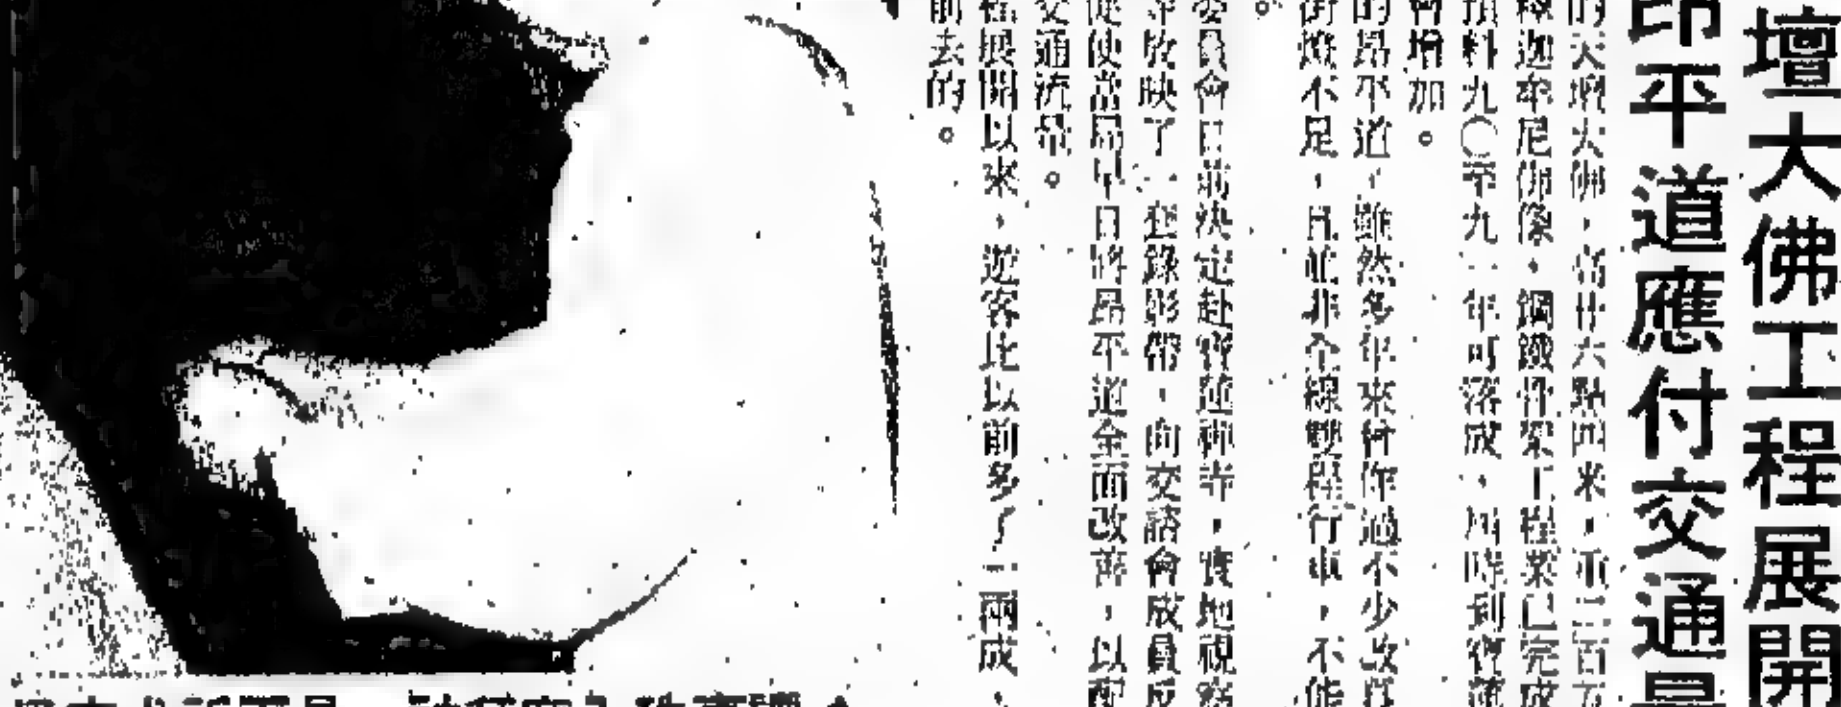 壇大佛工程展開
平道應付交通
的天壇大佛，高廿六點四米，重二百五
釋迦牟尼佛像，鋼鐵骨架工程業已完成
預料九〇至九一年可落成，屆時到寶蓮
會增加。
的昂平道，雖然多年來曾作過不少改良
街燈不足，且並非全線雙程行車，不能
。
委員會日前決定赴寶蓮禪寺，實地視察
放映了一套錄影帶，向交諮會成員反
促使當局早日將昂平道全面改善，以配
交通流量。
程展開以來，遊客比以前多了一兩成，
前去的。